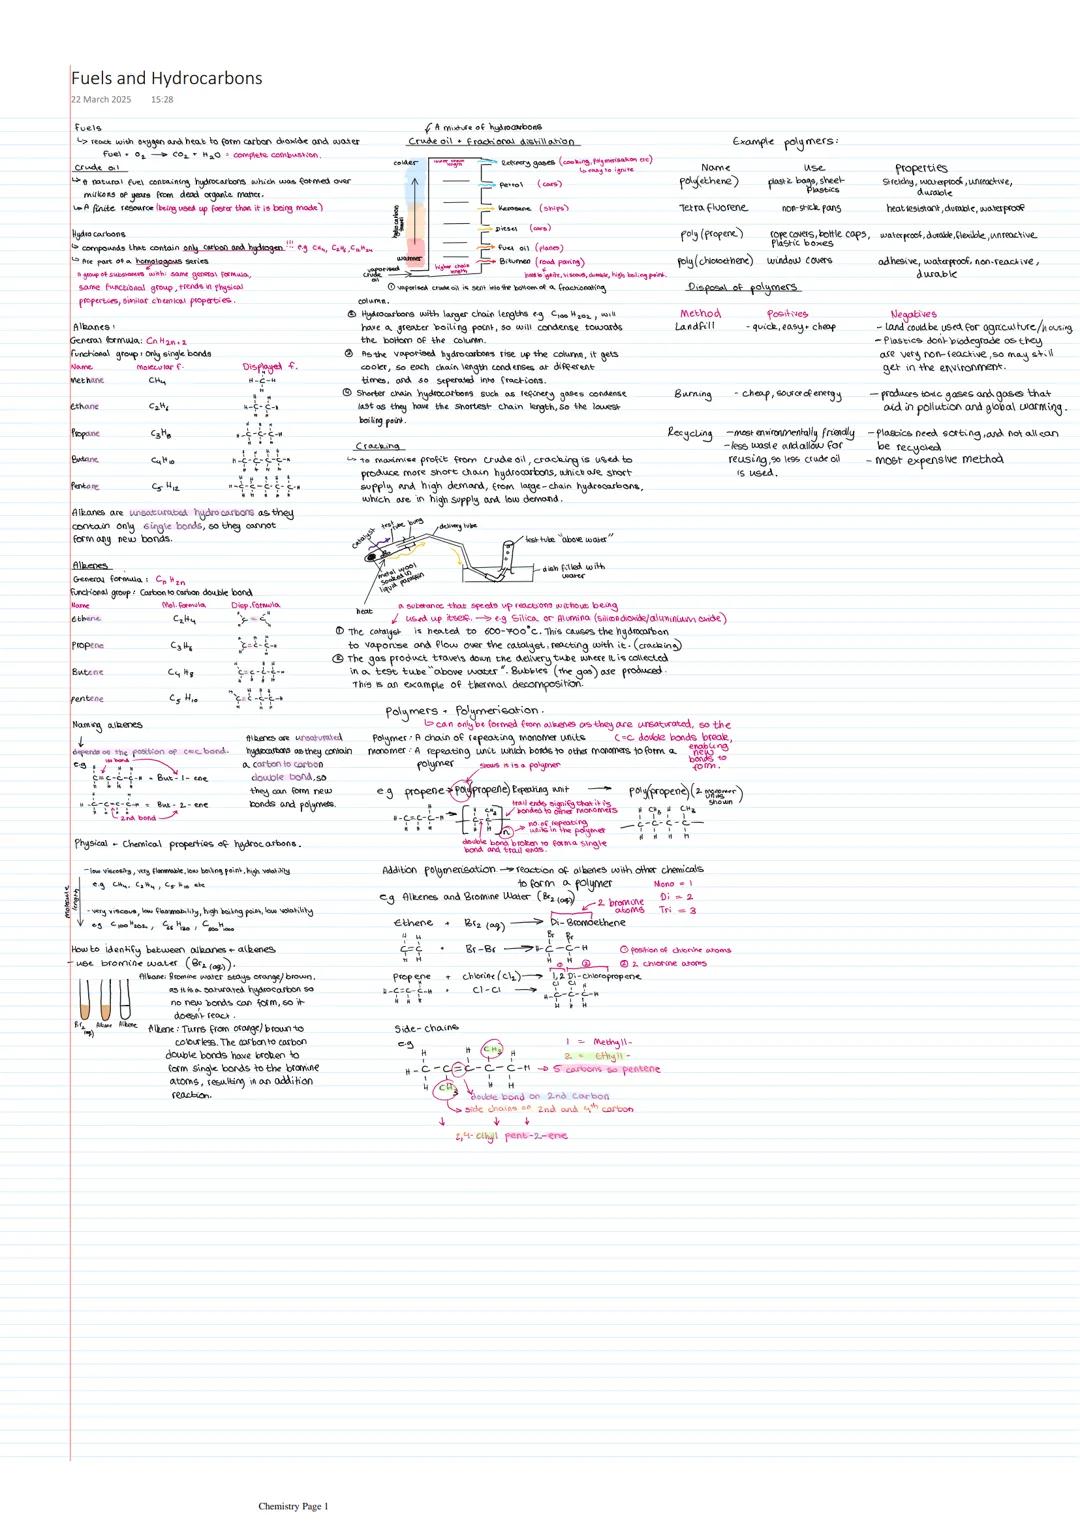 Fuels and Hydrocarbons
22 March 2025 15:28
Fuels
↳ react with oxygen and heat to form carbon dioxide and water
Fuel + O₂ → CO₂ + H₂O = complete combustion.
Crude oil
↳ A natural fuel containing hydrocarbons which was formed over
millions of years from dead organic matter.
↳ A finite resource (being used up faster than it is being made)
Hydrocarbons
↳ compounds that contain only carbon and hydrogen!!! e.g CH₄, C₂H₆,
↳ Are part of a homologous series
A group of substances with: same general formula,
same functional group, trends in physical
properties, similar chemical properties.
Alkanes:
General formula: CnH2n+2
Functional group: Only single bonds
Name Molecular f. Displayed f.
Methane CH₄
ethane C₂H₆
Propane C₃H₈
Butane C₄H₁₀
Pentane C₅H₁₂
Alkanes are unsaturated hydrocarbons as they
contain only single bonds, so they cannot
form any new bonds.
Alkenes
General formula: CnH2n
Functional group: Carbon to carbon double bond
Name Mol. formula Disp. formula
ethene C₂H₄
Propene C₃H₆
Butene C₄H₈
pentene C₅H₁₀
Naming alkenes
depends on the position of C=C bond.
e.g
1st bond
= But-1-ene
= But-2-ene
2nd bond
Alkenes are unsaturated
hydrocarbons as they contain
a carbon to carbon
double bond, so
they can form new
bonds and polymers.
Physical + Chemical properties of hydrocarbons.
molecule length
- low viscosity, very flammable, low boiling point, high volatility
e.g CH₄, C₂H₄, C₅H₁₀ etc
- very viscous, low flammability, high boiling point, low volatility
eg C₁₀₀H₂₀₂,
How to identify between alkanes + alkenes
- use bromine water (Br₂ (aq)).
Br₂ (aq) Alkane Alkene
Alkane: Bromine water stays orange/brown,
as it is a saturated hydrocarbon so
no new bonds can form, so it
doesn't react.
Alkene: Turns from orange/brown to
colourless. The carbon to carbon
double bonds have broken to
form single bonds to the bromine
atoms, resulting in an addition
reaction.
A mixture of hydrocarbons
Crude oil + fractional distillation
colder
warmer
vaporised crude oil
higher chain length
Refinery gases (cooking, polymerisation etc)
↳ easy to ignite
Petrol (cars)
Kerosene (ships)
Diesel (cars)
Fuel oil (planes)
Bitumen (road paving)
hard to ignite, viscous, durable, high boiling point.
① vaporised crude oil is sent into the bottom of a fractionating
column.
② Hydrocarbons with larger chain lengths eg C₁₀₀H₂₀₂, will
have a greater boiling point, so will condense towards
the bottom of the column.
③ As the vaporised hydrocarbons rise up the column, it gets
cooler, so each chain length condenses at different
times, and so seperated into fractions.
④ Shorter chain hydrocarbons such as refinery gases condense
last as they have the shortest chain length, so the lowest
boiling point.
Cracking
↳ to maximise profit from crude oil, cracking is used to
produce more short chain hydrocarbons, which are short
supply and high demand, from large-chain hydrocarbons,
which are in high supply and low demand.
catalyst
test tube
bung
delivery tube
test tube "above water"
dish filled with
water
metal wool
soaked in
liquid paraffin
heat
a substance that speeds up reactions without being
used up itself. → e.g Silica or Alumina (silicon dioxide/aluminium oxide)
① The catalyst is heated to 600-700°c. This causes the hydrocarbon
to vaporise and flow over the catalyst, reacting with it. (cracking)
② The gas product travels down the delivery tube where it is collected
in a test tube "above water". Bubbles (the gas) are produced.
This is an example of thermal decomposition.
Polymers + Polymerisation.
↳ can only be formed from alkenes as they are unsaturated, so the
C=C double bonds break,
enabling
new
bonds to
form.
Polymer: A chain of repeating monomer units
monomer: A repeating unit which bonds to other monomers to form a
polymer
shows it is a polymer
eg propene → Poly(propene) Repeating unit → Poly(propene) (2 monomer units shown)
trail ends signify that it is
bonded to other monomers
no. of repeating
units in the polymer
double bond broken to form a single
bond and trail ends.
Addition polymerisation → reaction of alkenes with other chemicals
to form a polymer
Mono = 1
Di = 2
Tri = 3
eg Alkenes and Bromine Water (Br₂ (aq))
2 bromine
atoms
Ethene + Br₂ (aq) → Di-Bromoethene
+ Br-Br →
① position of chlorine atoms
② 2 chlorine atoms
Propene + chlorine (Cl₂) → 1,2 Di-chloropropene
+ Cl-Cl →
Side-chains
e.g
1 = Methyll-
2 = Ethyll-
→ 5 carbons so pentene
double bond on 2nd Carbon
side chains on 2nd and 4th carbon
2,4-ethyl pent-2-ene
Example polymers:
Name Use Properties
poly(ethene) plastic bags, sheet plastics Stretchy, waterproof, unreactive, durable
Tetrafluorene non-stick pans heat resistant, durable, waterproof
poly(propene) rope covers, bottle caps, plastic boxes waterproof, durable, flexible, unreactive
poly(chloroethene) window covers adhesive, waterproof, non-reactive, durable
Disposal of polymers
Method Positives Negatives
Landfill - quick, easy + cheap - land could be used for agriculture/housing
- Plastics dont biodegrade as they
are very non-reactive, so may still
get in the environment.
Burning - cheap, source of energy - produces toxic gases and gases that
aid in pollution and global warming.
Recycling - most environmentally friendly - plastics need sorting, and not all can
be recycled
- less waste and allow for
reusing, so less crude oil
is used.
- most expensive method
Chemistry Page 1